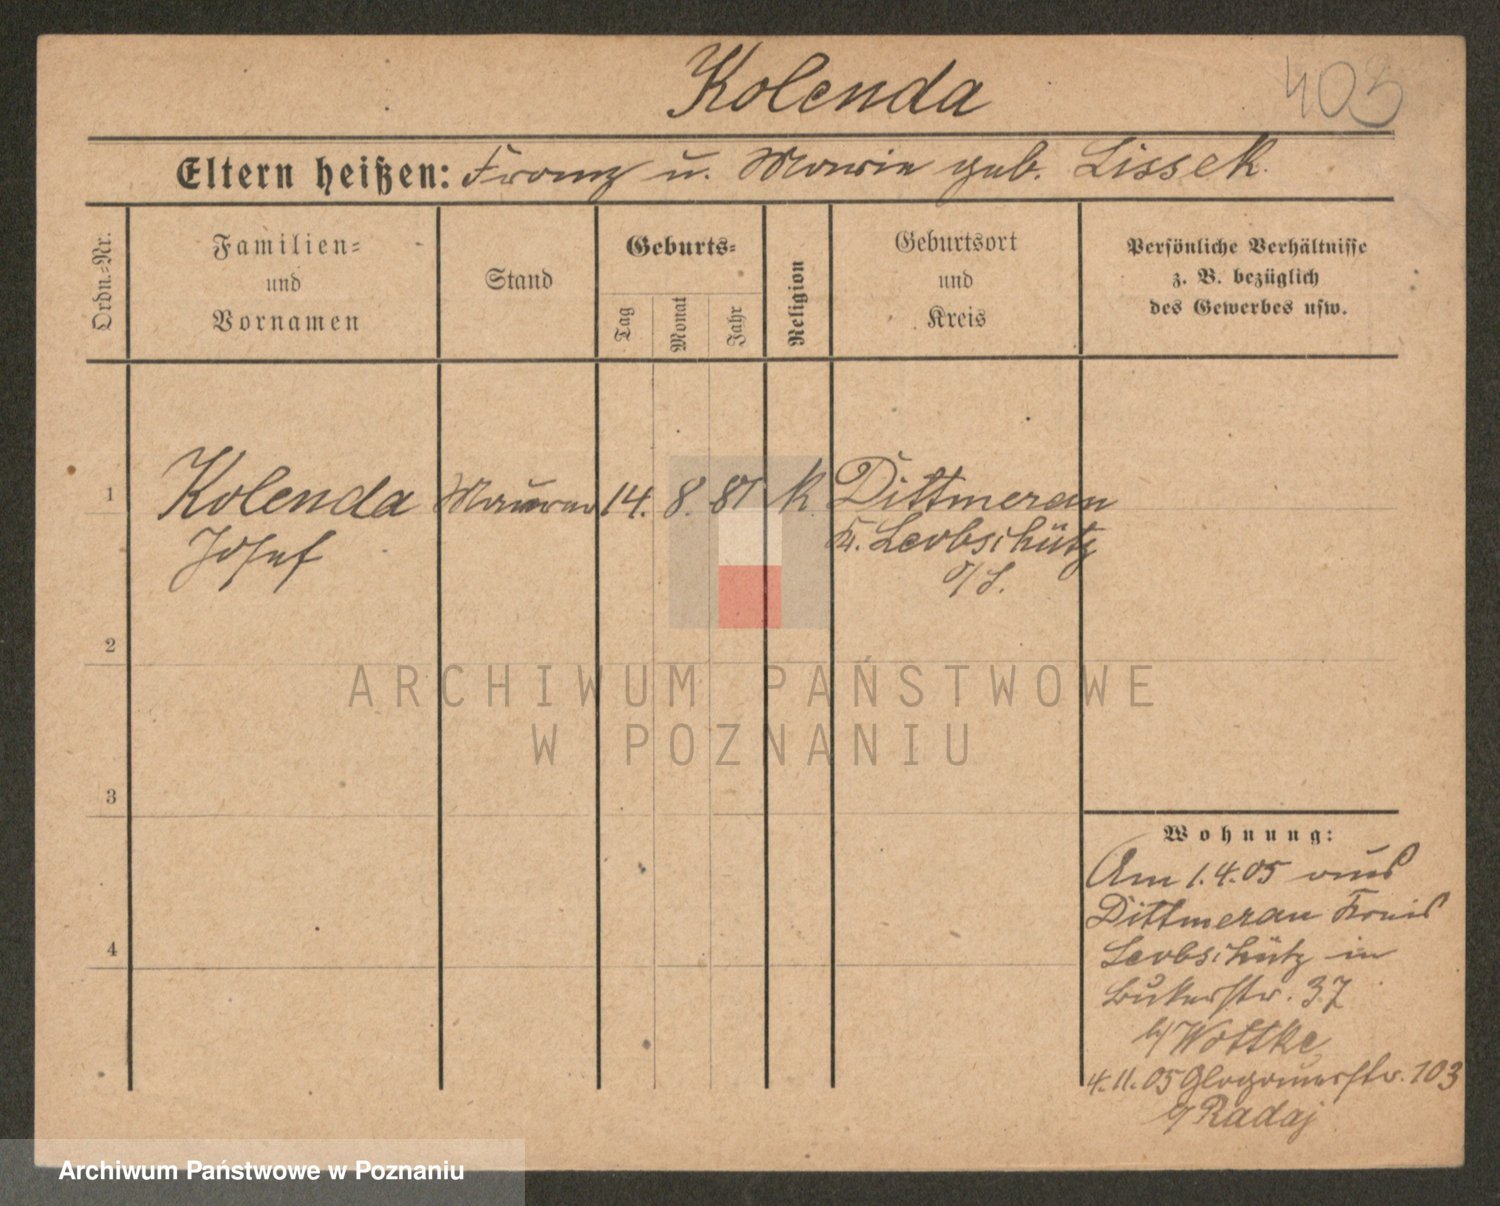 Kolenda
403
Eltern heißen: Franz u. Marie geb. Lissek.
Ordn.-Nr.
Familien-
und
Vornamen
Stand
Geburts-
Tag
Monat
Jahr
Religion
Geburtsort
und
Kreis
Persönliche Verhältnisse
z. B. bezüglich
des Gewerbes usw.
1
Kolenda Maurer 14. 8. 81 k. Dittmerau
Josef
K. Leobschütz
O/S.
2
3
4
Wohnung:
Am 1.4.05 aus
Dittmerau Kreis
Leobschütz in
Bukerstr. 37
b/ Wottke
4.11.05 Glogauerstr. 103
b/ Radaj
ARCHIWUM PAŃSTWOWE
W POZNANIU
Archiwum Państwowe w Poznaniu